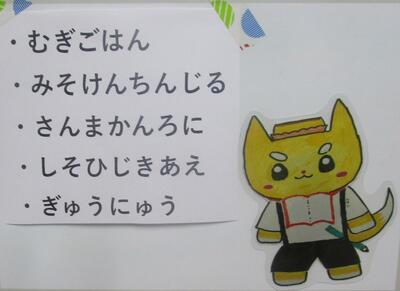 ・むぎごはん
・みそけんちんじる
・さんまかんろに
・しそひじきあえ
・ぎゅうにゅう